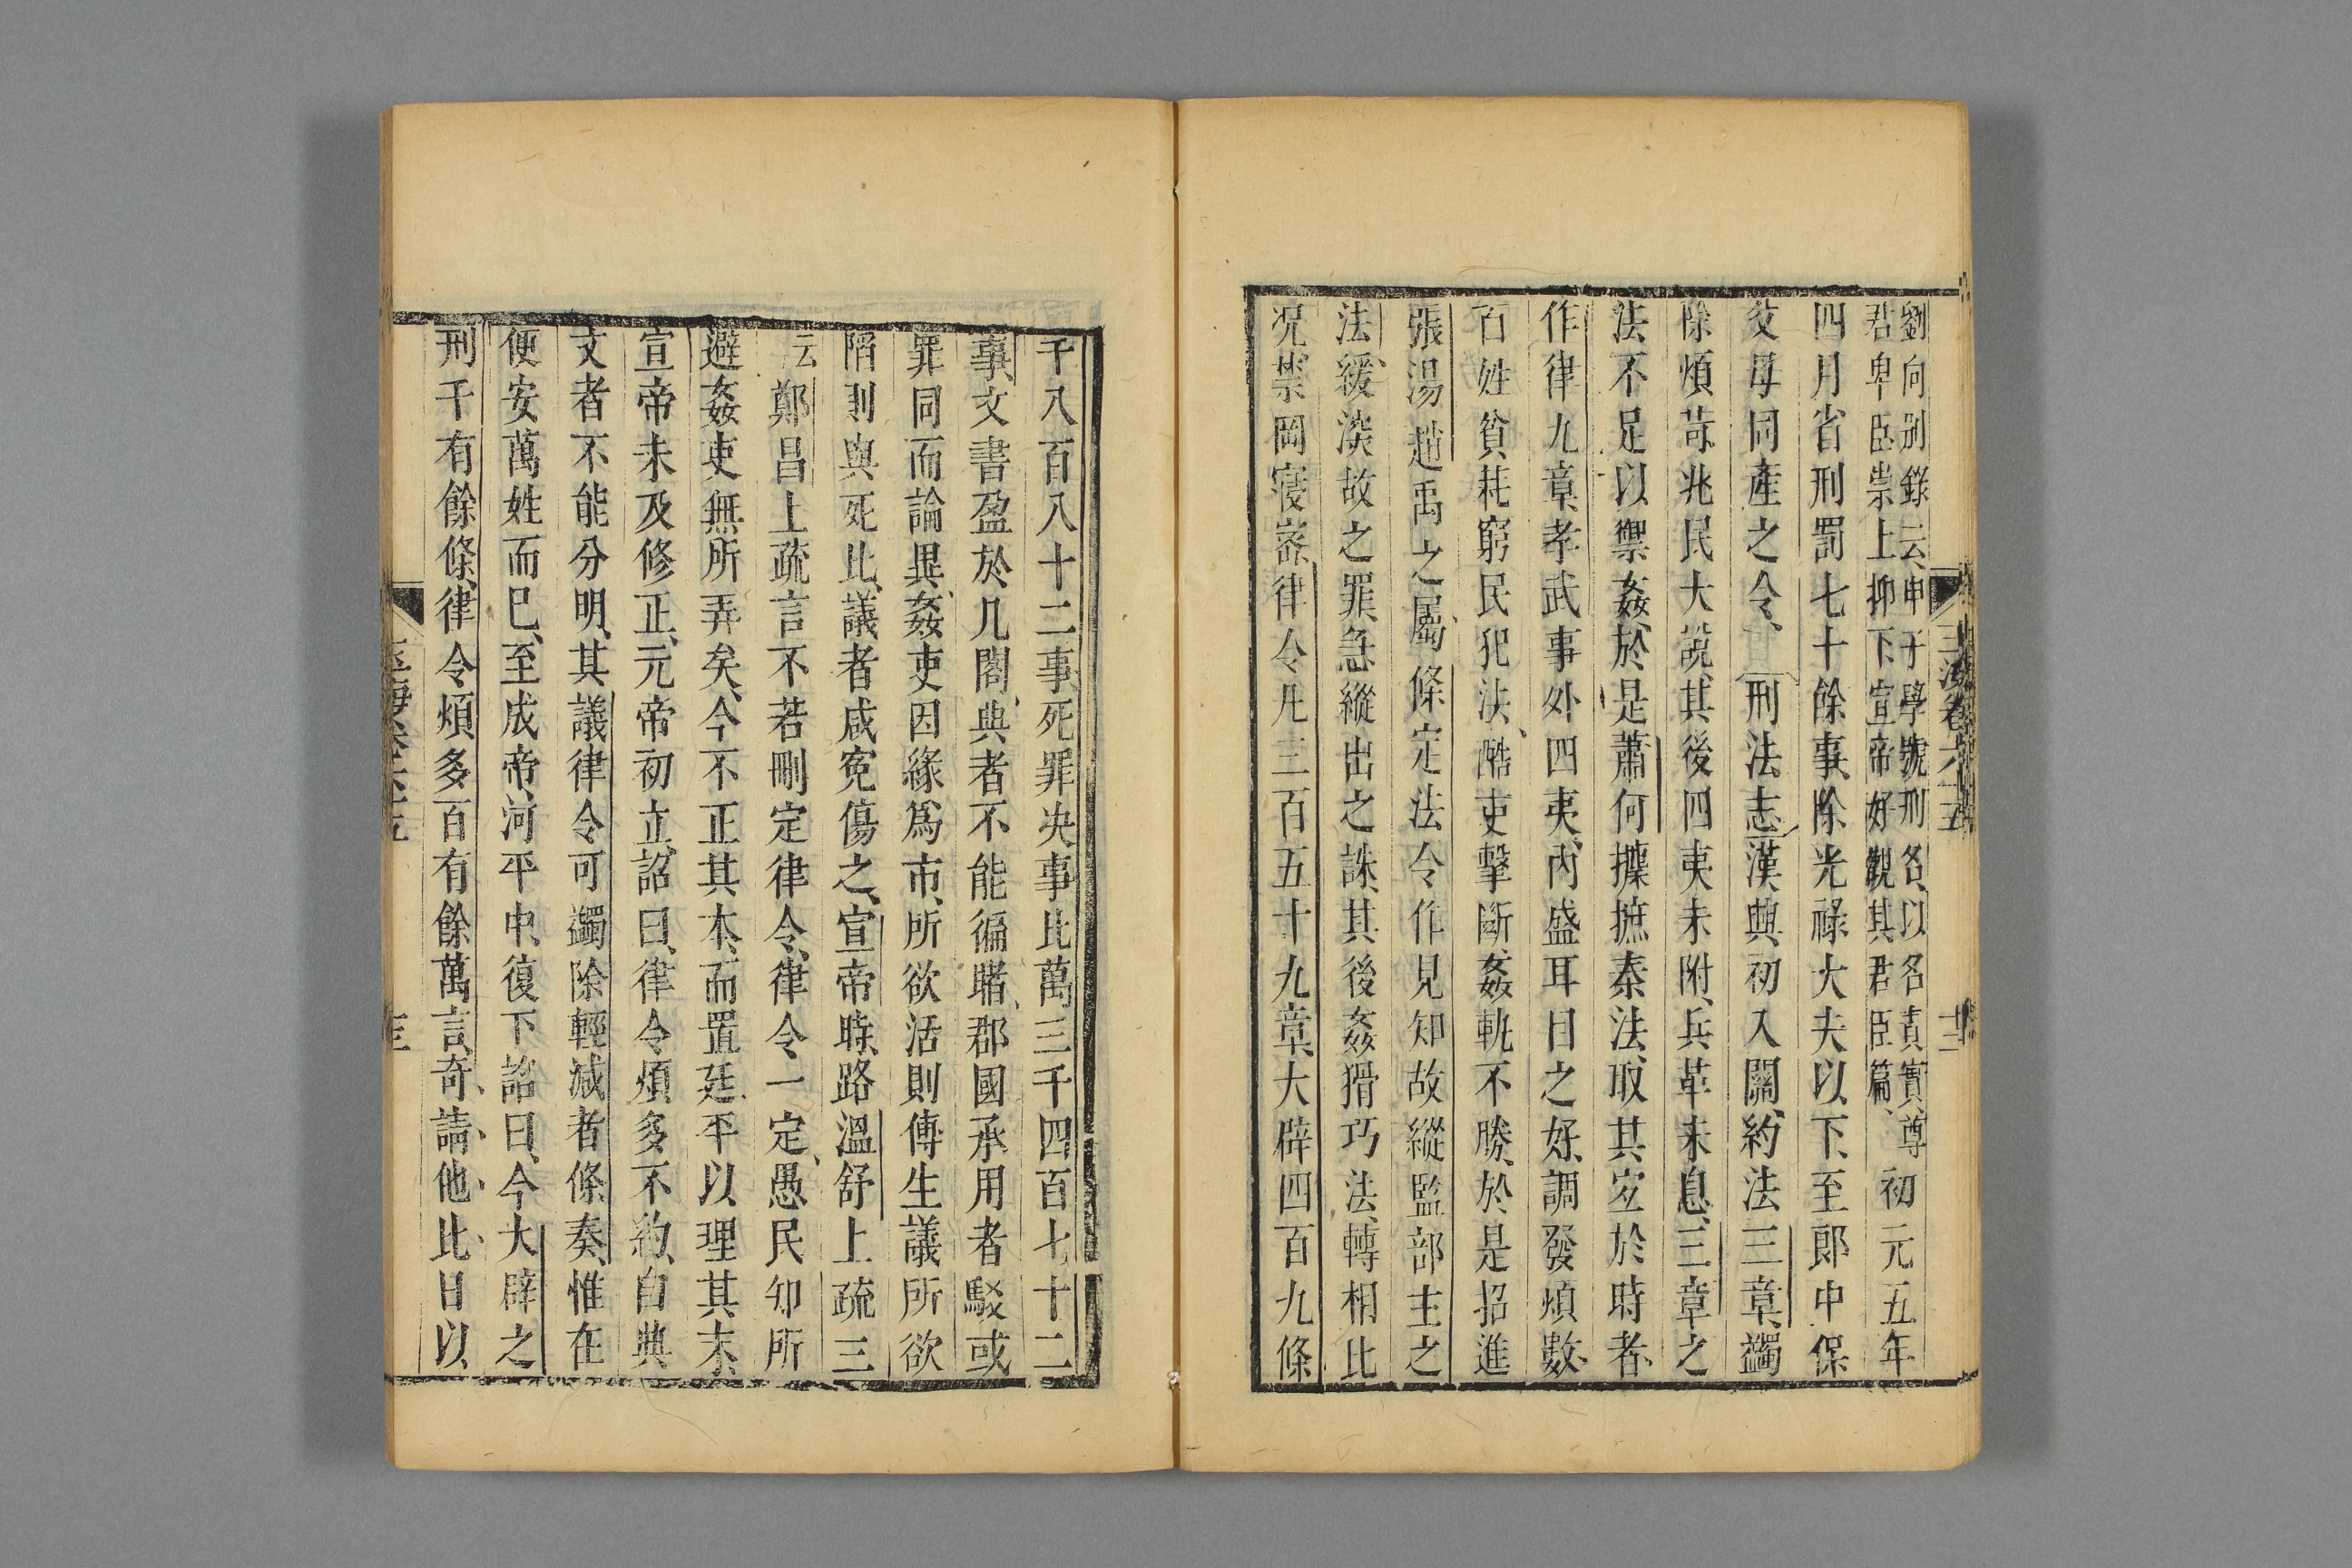 劉向別錄云、申子學號刑名、以名責實、尊
君卑臣、崇上抑下、宣帝好觀其君臣篇、
初元五年
四月、省刑罰七十餘事、除光祿大夫以下、至郎中保
父母同產之令、刑法志、漢興、初入關、約法三章、蠲
除煩苛、兆民大說、其後四夷未附、兵革未息、三章之
法不足以禦姦、於是蕭何攈摭秦法、取其宜於時者、
作律九章、孝武事外四夷、內盛耳目之好、調發煩數、
百姓貧耗、窮民犯法、酷吏擊斷、姦軌不勝、於是招進
張湯趙禹之屬、條定法令、作見知故縱監部主之
法、緩深故之罪、急縱出之誅、其後姦猾巧法、轉相比
況、禁罔寖密、律令凡三百五十九章、大辟四百九條
玉海卷六十五
千八百八十二事、死罪决事比萬三千四百七十二
事、文書盈於几閣、典者不能徧睹、郡國承用者駁、或
罪同而論異、姦吏因緣爲市、所欲活則傅生議、所欲
陷則與死比、議者咸寃傷之、宣帝時、路溫舒上疏三
云鄭昌上疏言、不若刪定律令、律令一定、愚民知所
避、姦吏無所弄矣、今不正其本、而置廷平以理其末、
宣帝未及修正、元帝初立、詔曰、律令煩多不約、自典
文者不能分明、其議律令可蠲除輕減者條奏、惟在
便安萬姓而已、至成帝河平中、復下詔曰、今大辟之
刑千有餘條、律令煩多、百有餘萬言、奇請他比、日以